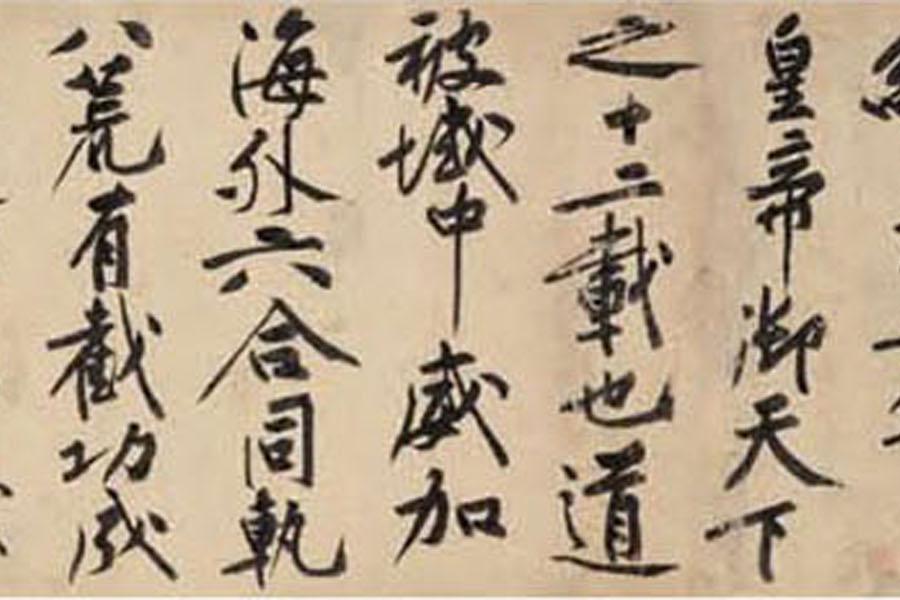 皇帝御天下
之十二載也道
被域中威加
海外六合同軌
八荒有截功成